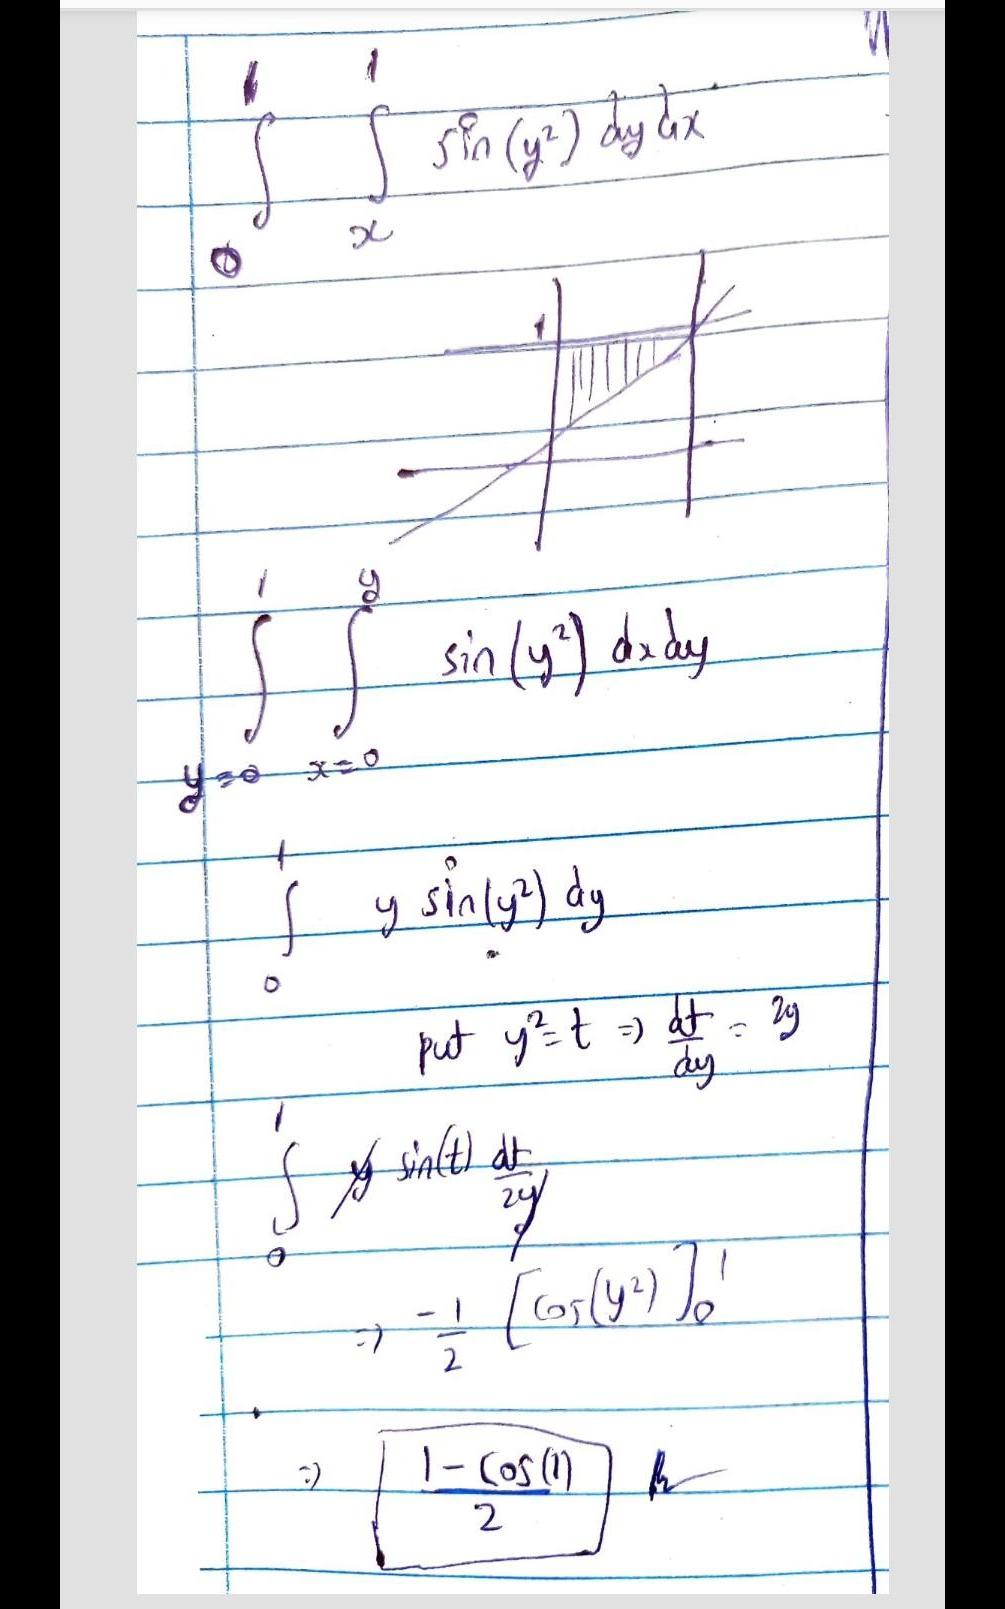 ∫₀¹ ∫ₓ¹ sin(y²) dy dx
1
∫_{y=0}^{1} ∫_{x=0}^{y} sin(y²) dx dy
∫₀¹ y sin(y²) dy
put y² = t ⇒ dt/dy = 2y
∫₀¹ y sin(t) dt/2y
⇒ -1/2 [cos(y²)]₀¹
⇒ 1 - cos(1)/2